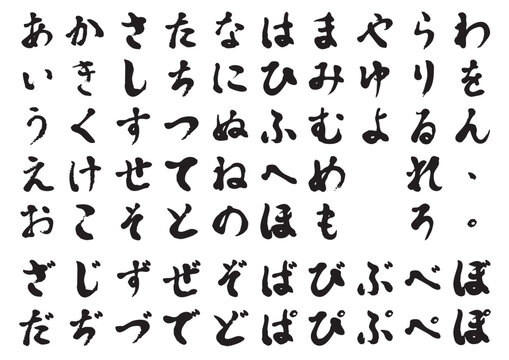 あかさたなはまやらわ
いきしちにひみゆりを
うくすつぬふむよるん
えけせてねへめれ、
おこそとのほもろ。
ざじずぜぞばびぶべぼ
だぢづでどぱぴぷぺぽ